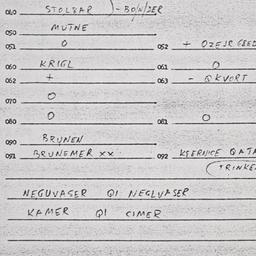 040 STOLBAR )-BO/N/ZER
050 MUTNE
051 O 052 + OZEJR
061 KRIGL 061 O
062 + 063 - QKVORT
070 O
080 O 081 O
090 BRUNEN
091 BRUNEMER XX 092 KSERNICE QATA
(TRINKE
NEGUVASER QI NEGLVASER
KAMER QI CIMER